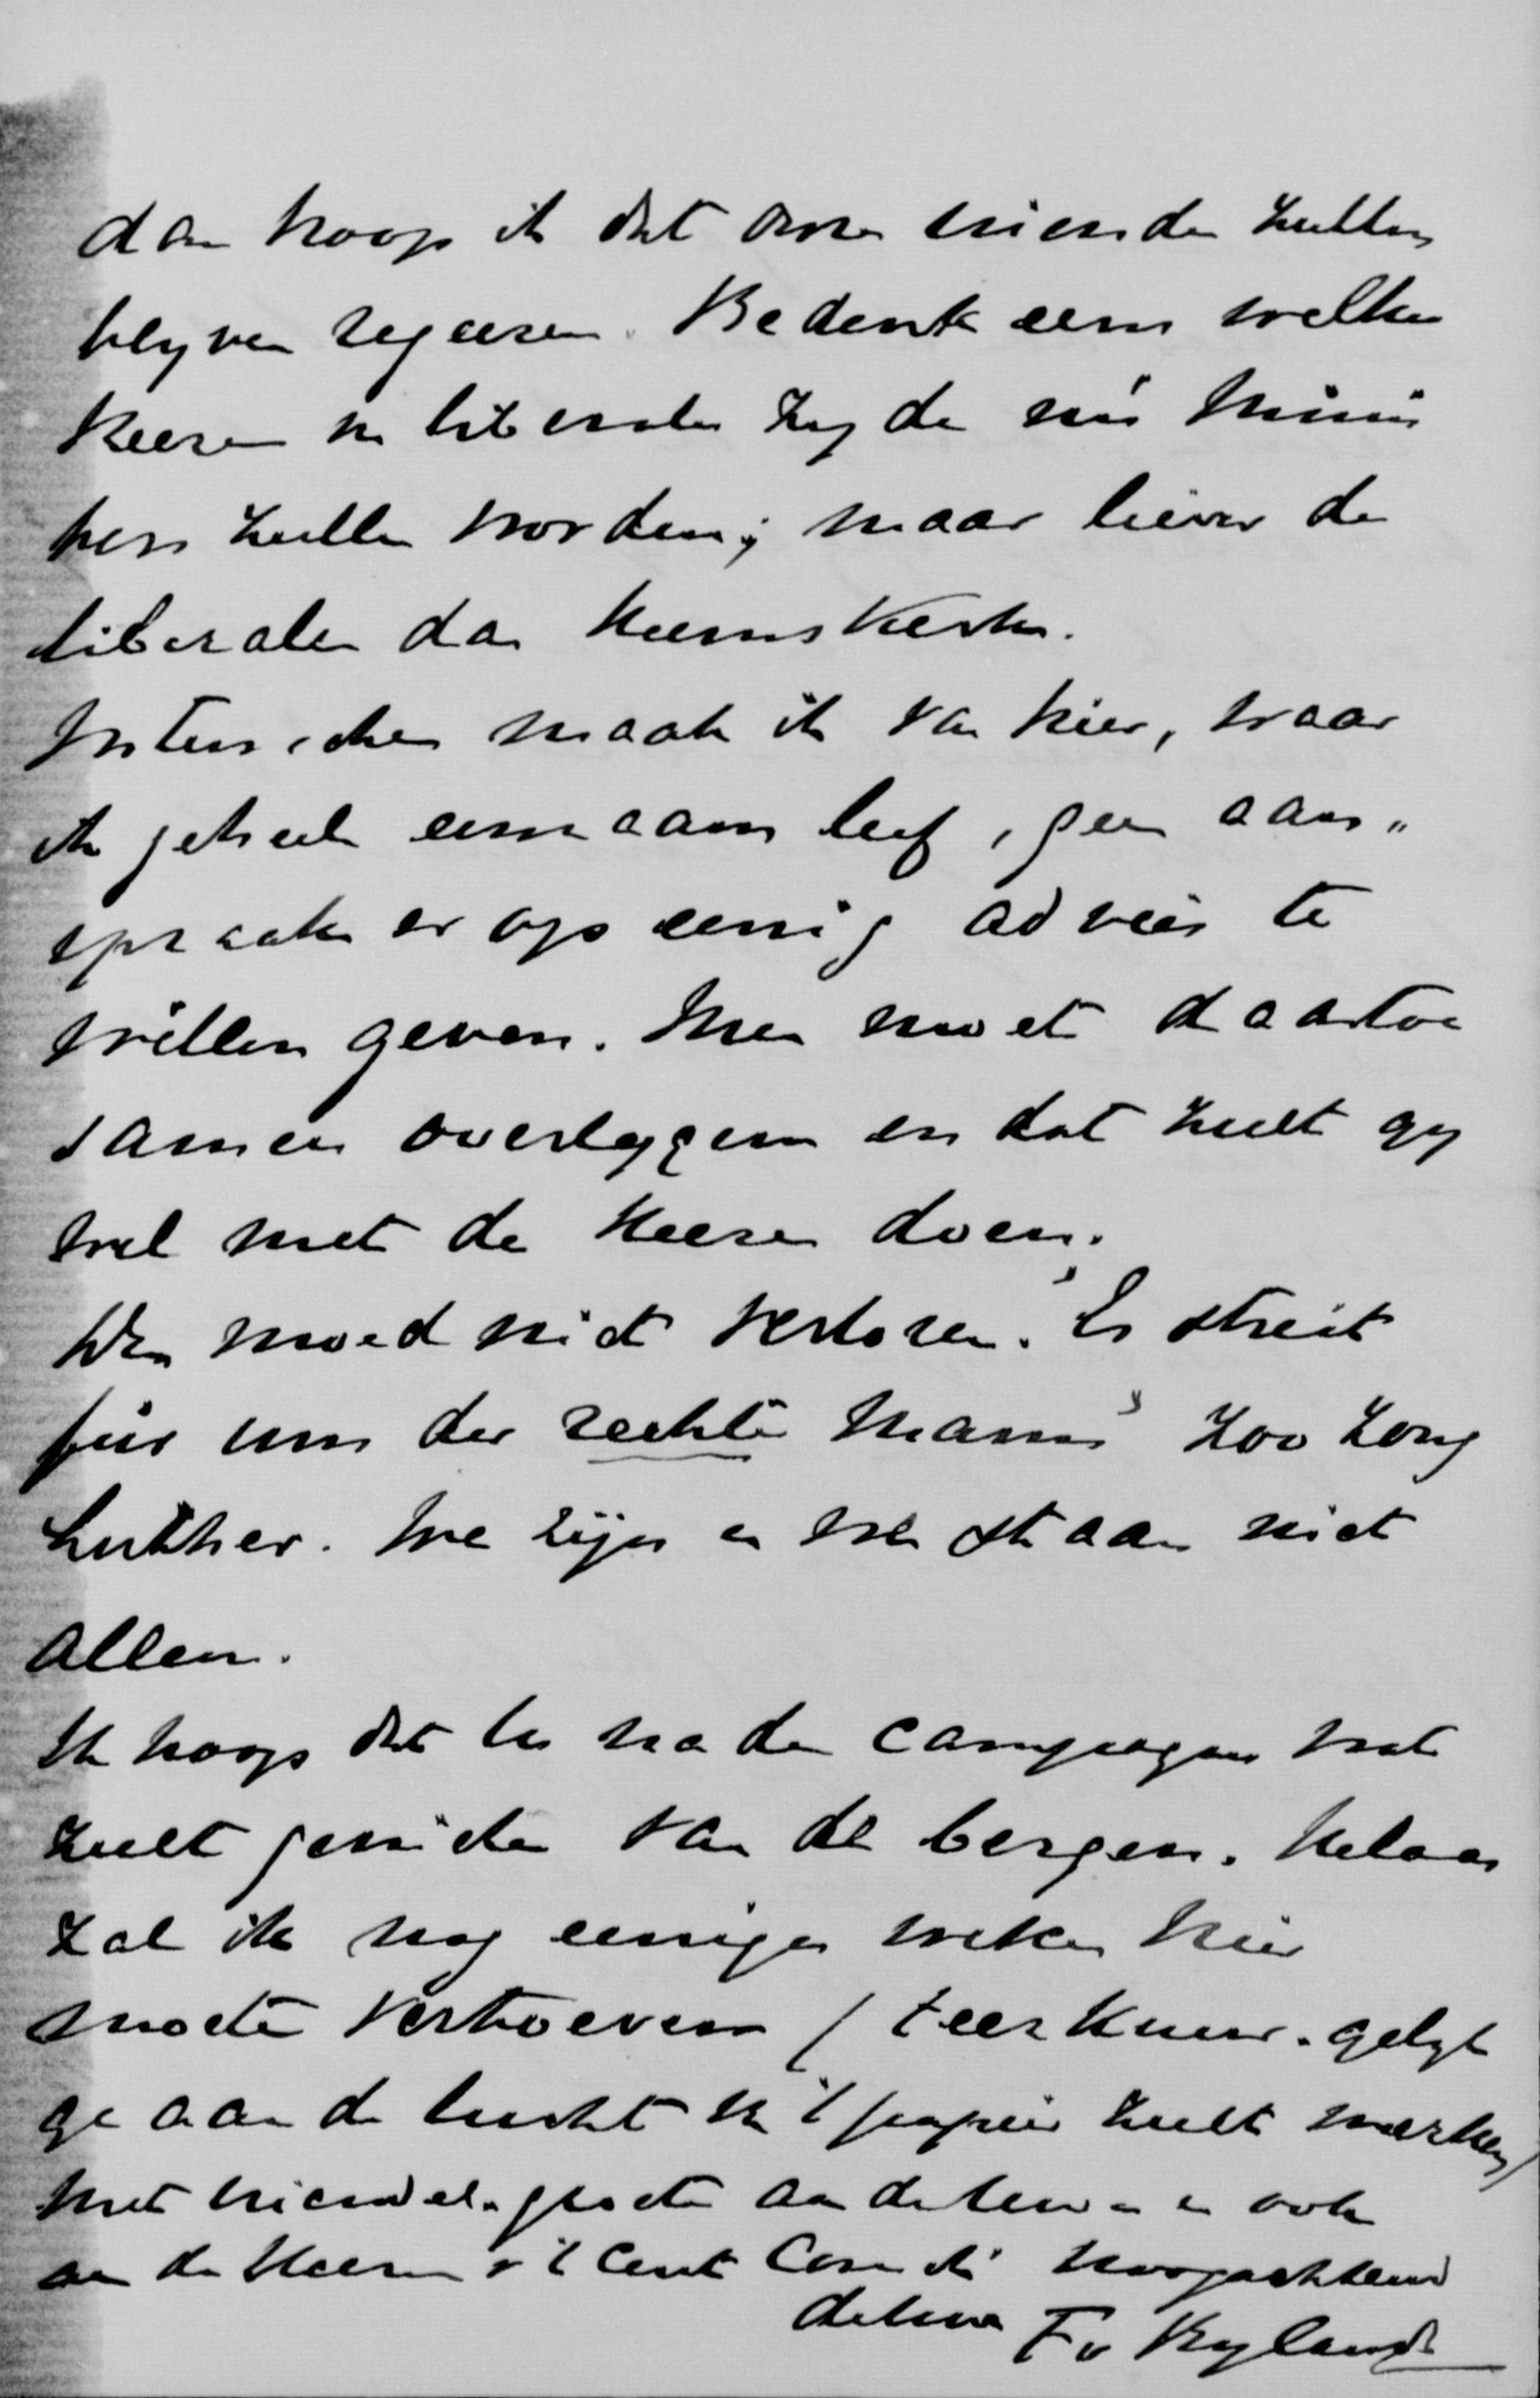 dan hoop ik dat onze vrienden zullen
blyven regeeren. Bedenk eens welke
Heeren v. liberale zyde nú Minis
ters zullen worden; maar liever de
liberalen dan Heemskerk.
Intusschen maak ik van hier, waar
ik geheel eenzaam leef, geen aan„
spraak er op eenig advies te
willen geven. Men moet daartoe
samen overleggen en dat zult gy
wel met de Heeren doen.
Den moed niet verloren. „Es streit
für uns der rechte Mann" zoo zong
Luther. We zijn en we staan niet
alleen.
Ik hoop dat Us na de campagne wat
zult genieten van de bergen. Helaas
zal ik nog eenige weken hier
moeten vertoeven (teerkuur. gelyk
ge aan de lucht v 't papier zult merken)
met vriendel. groeten aan de Uwen en ook
aan de Heeren v 't Cent Comité hoogachtend
de Uwe F v Bylandt